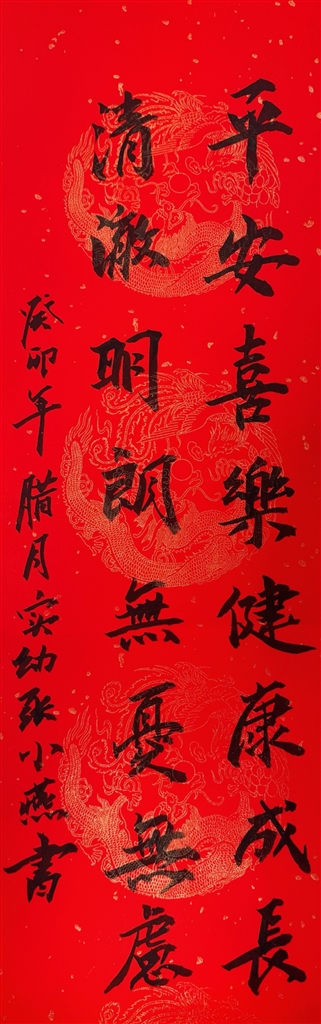 平安喜樂健康成長
清澈明朗無憂無慮
癸卯年腊月实幼张小燕书